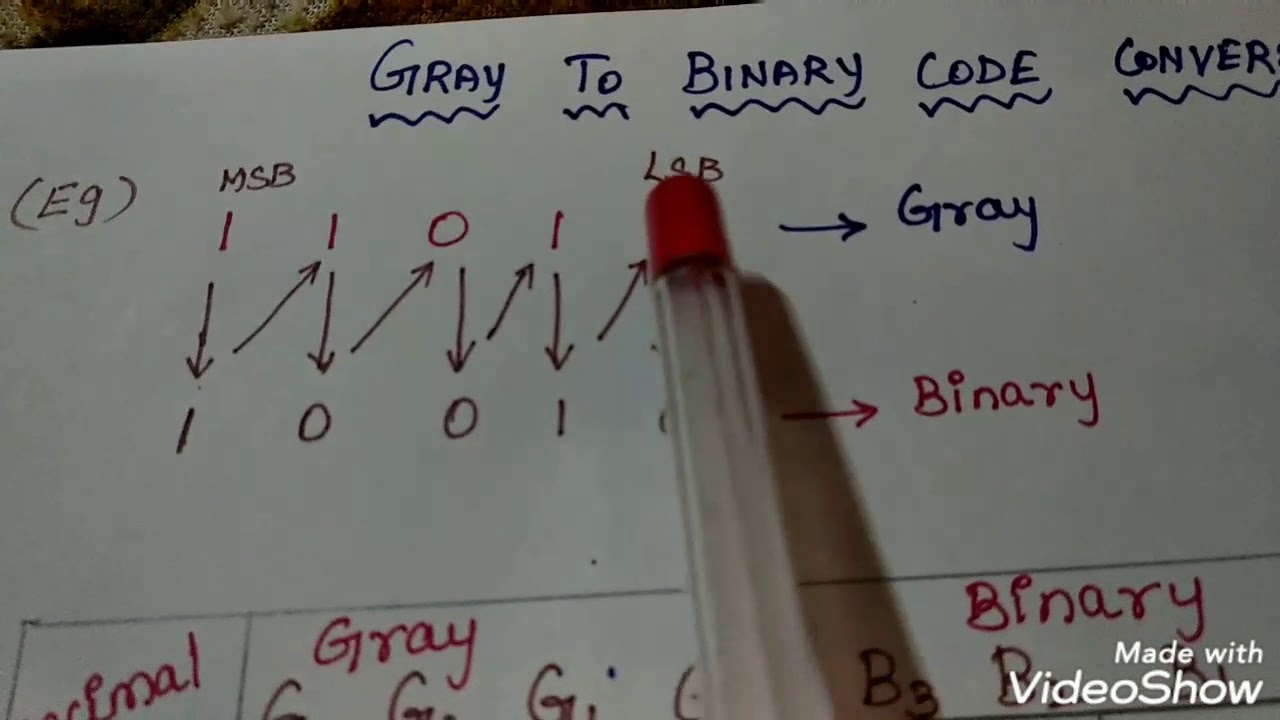 GRAY TO BINARY CODE CONVER
(Eg) MSB LSB
1 1 0 1 → Gray
1 0 0 1 → Binary
Gray Binary
B3
Made with
VideoShow